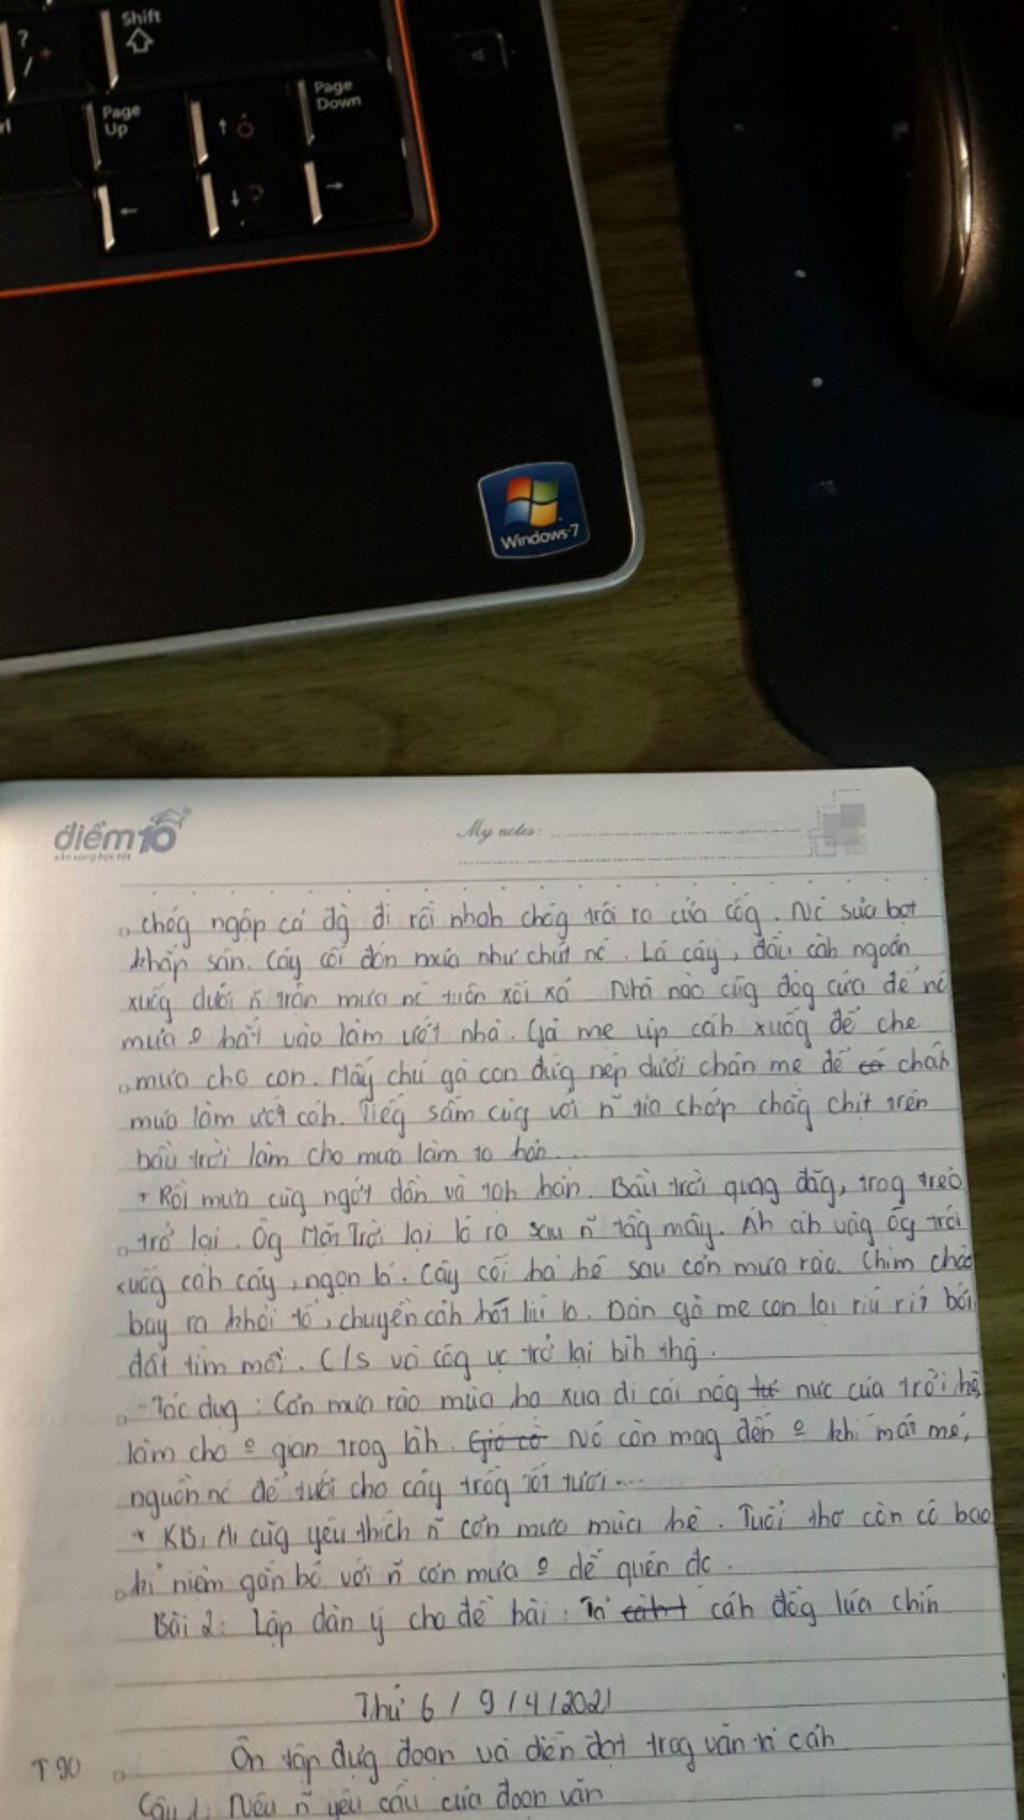 ?
/
Shift
rl
Page Up
Page Down
A
Windows 7
điểm10
sẵn sàng học tốt
My notes:
chóg ngập cả đg đi rồi nhah chóg trôi ra cửa cốg. Nc sủa bọt
khắp sân. Cây cối đón mưa như chút nc. Lá cây, đầu càh ngoắn
xuốg dưới ñ trận mưa nc tuôn xối xả Nhà nào cũg đóg cửa để nc
mưa o hắt vào làm ướt nhà. Gà mẹ úp cáh xuốg để che
mưa cho con. Mấy chú gà con đứg nép dưới chân mẹ để có cháh
mưa làm ướt cáh. Tiếg sấm cùg với ñ tia chớp chằg chịt trên
bầu trời làm cho mưa làm to hơn...
+ Rồi mưa cũg ngớt dần và tạh hẳn. Bầu trời quag đãg, trog trẻo
trở lại. Ôg Mặt Trời lại ló ra sau ñ tầg mây. Áh áih vàg ôg trải
xuốg càh cây, ngọn lá. Cây cối hả hê sau cơn mưa rào. Chim chóc
bay ra khỏi tổ, chuyền càh hót líu lo. Đàn gà mẹ con lại ríu rít bới
đất tìm mồi. C/s và côg vc trở lại bìh thg.
- Tác dụg: Cơn mưa rào mùa hạ xua đi cái nóg tư nực của trời hè,
làm cho o gian trog làh. Gió cò Nó còn mag đến o khí mát mẻ,
nguồn nc để tưới cho cây trồg tốt tươi...
+ KB, Ai cũg yêu thích ñ cơn mưa mùa hè. Tuổi thơ còn có bao
kỉ niệm gắn bó với ñ cơn mưa o dễ quên đc.
Bài 2: Lập dàn ý cho đề bài: Tả càh t cáh đồg lúa chín
Thứ 6 / 9 / 4 / 2021
T 90
Ôn tập dựg đoạn và diễn đạt trog văn n cảh
Câu 1: Nêu ñ yêu cầu của đoạn văn